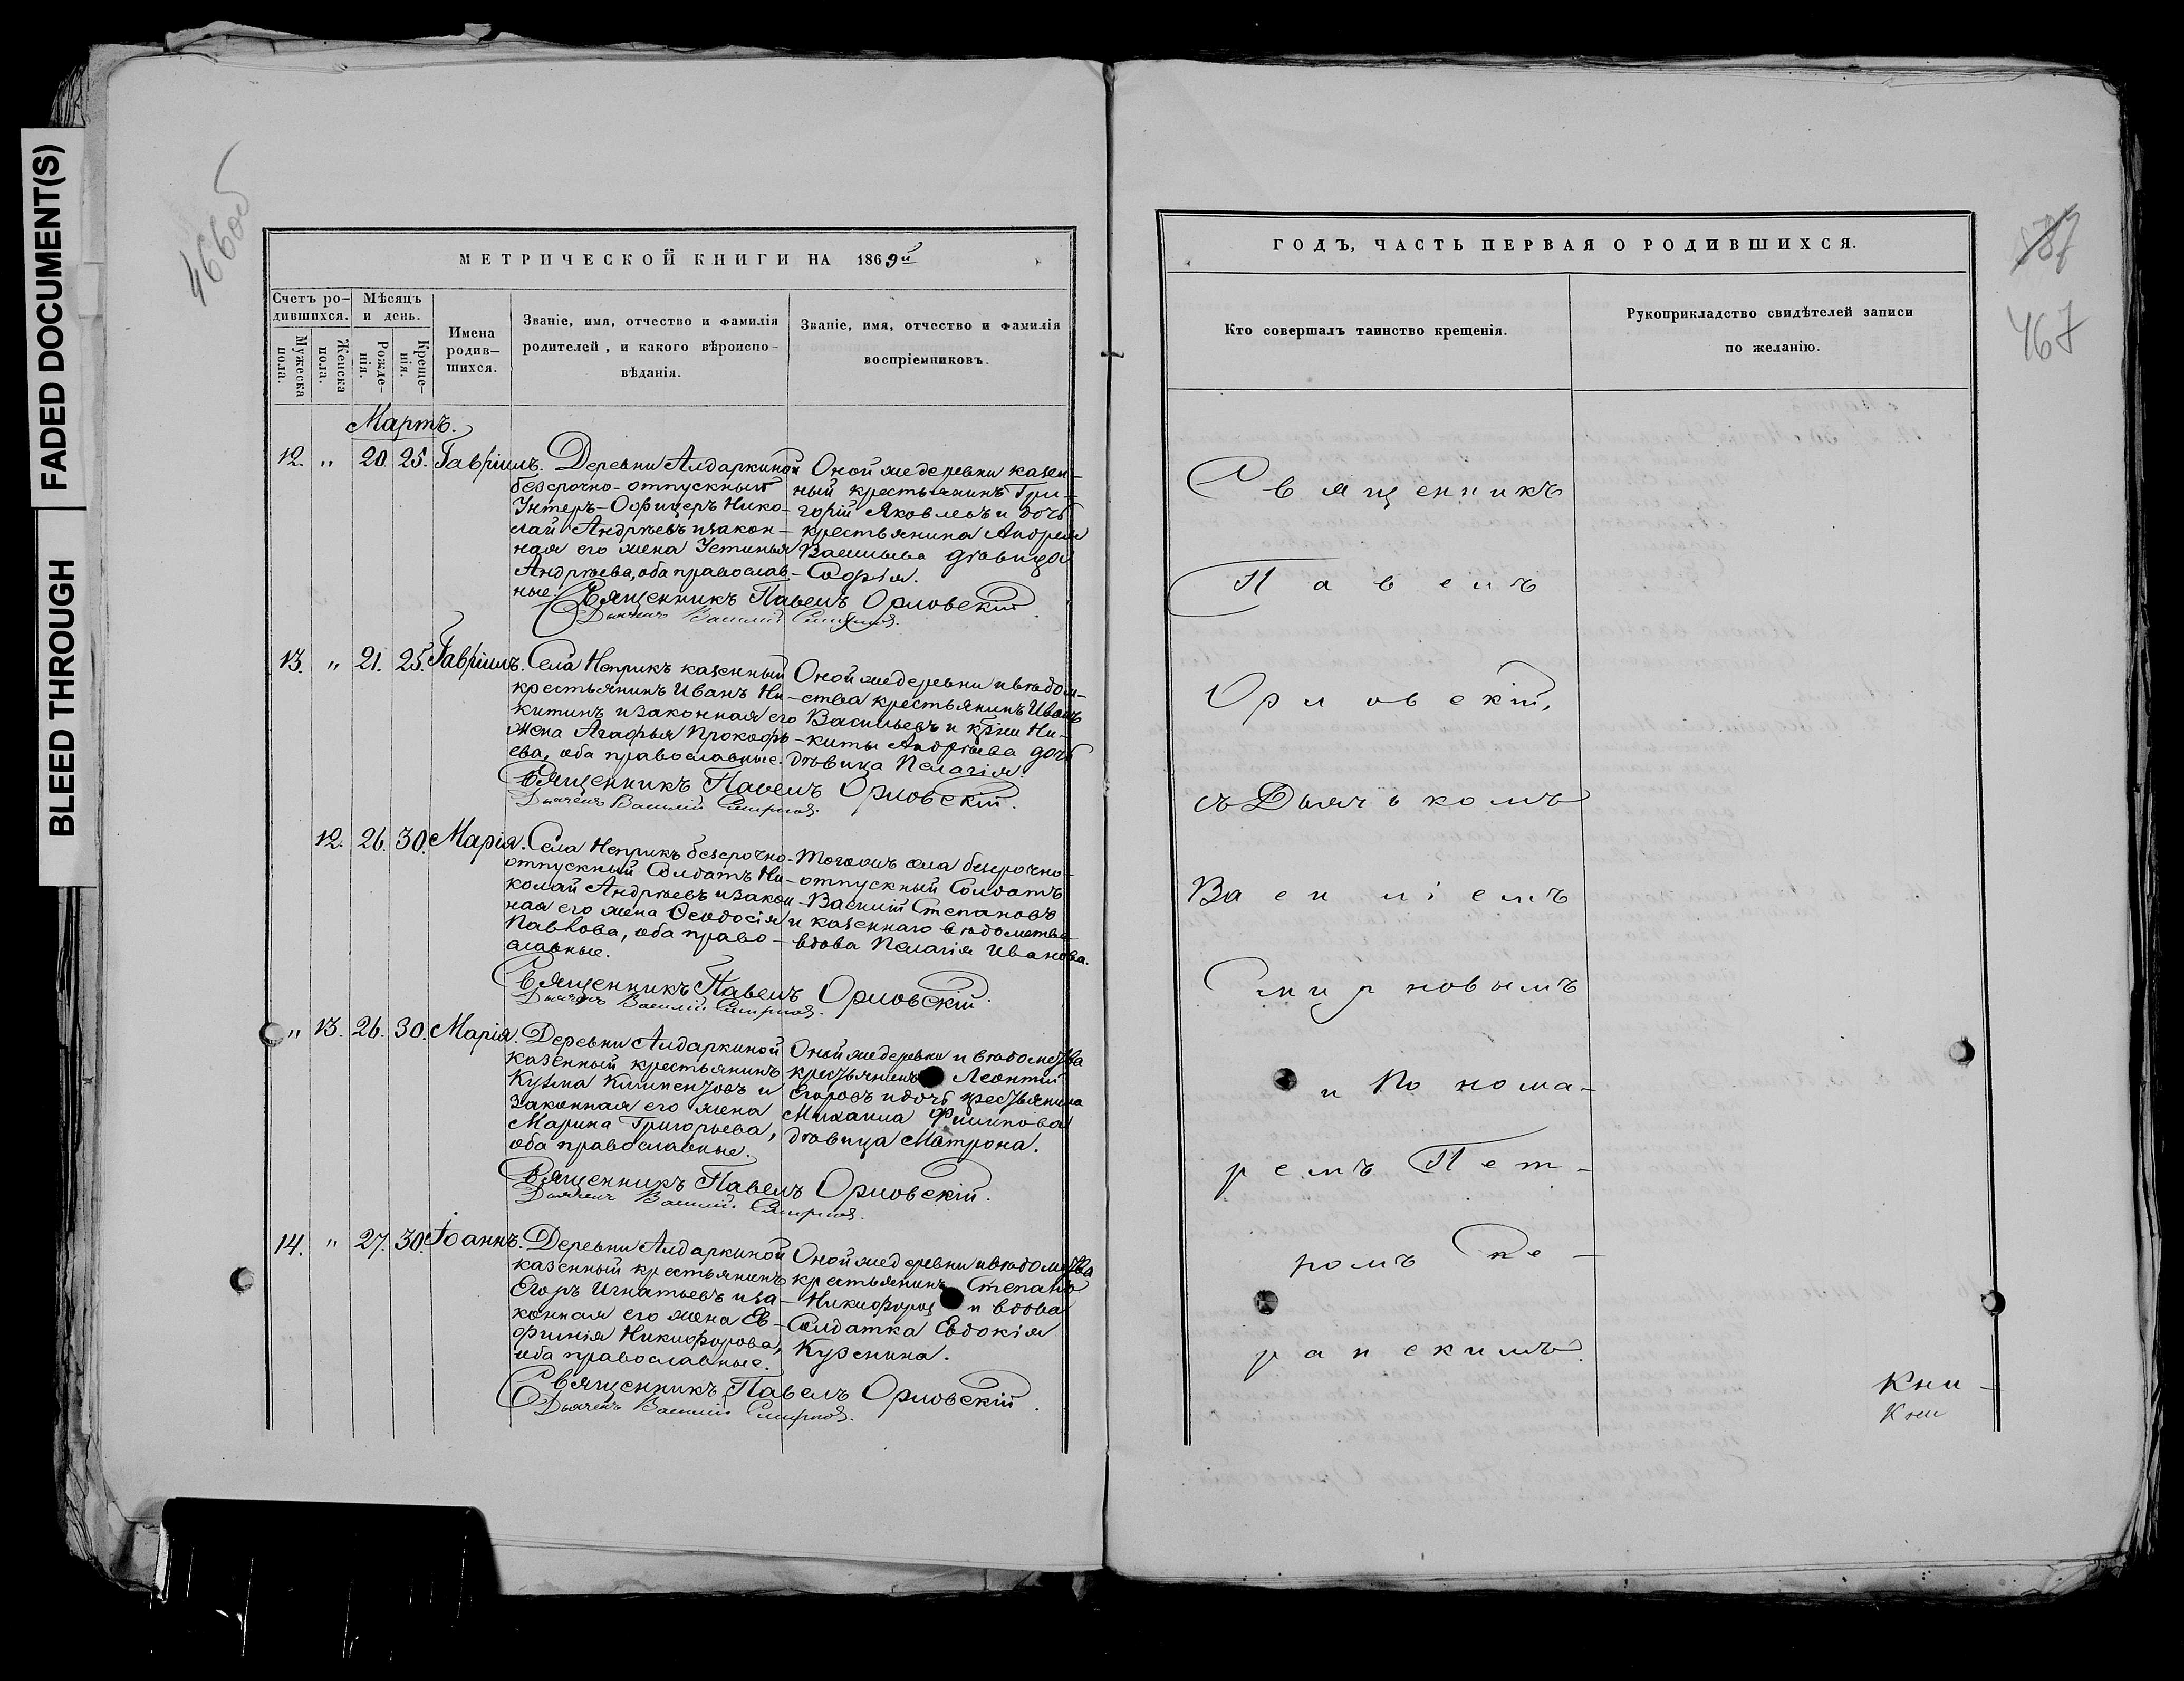 FADED DOCUMENT(S)
BLEED THROUGH
466об
МЕТРИЧЕСКОЙ КНИГИ НА 1869й
Счетъ ро-
дившихся.
Мѣсяцъ
и день.
Имена
родив-
шихся.
Званіе, имя, отчество и фамилія
родителей, и какого вѣроиспо-
вѣданія.
Званіе, имя, отчество и фамилія
воспріемниковъ.
Мужеска
пола.
Женска
пола.
Рожде-
нія.
Креще-
нія.
Мартъ.
12. " 20. 25. Гавріилъ.
Деревни Алдаркиной
безсрочно-отпускный
Унтеръ-Офицеръ Нико-
лай Андрѣевъ и закон-
ная его жена Устинья
Андрѣева, оба православ-
ные.
Оной же деревни казен-
ный крестьянинъ Гри-
горій Яковлевъ и дочь
крестьянина Андрея
Васильева дѣвица
Софія.
Священникъ Павелъ Орловскій.
Дьячекъ Василій Смирновъ.
13. " 21. 25. Гавріилъ.
Села Неприкъ казенный
крестьянинъ Иванъ Ни-
китинъ и законная его
жена Агафья Прокофь-
ева, оба православные.
Оной же деревни и вѣдом-
ства крестьянинъ Иванъ
Васильевъ и кр͠ни Ни-
киты Андрѣева дочь
дѣвица Пелагія.
Священникъ Павелъ Орловскій.
Дьячекъ Василій Смирновъ.
12. 26. 30. Марія.
Села Неприкъ безсрочно-
отпускный Солдатъ Ни-
колай Андрѣевъ и закон-
ная его жена Ѳеодосія
Павлова, оба право-
славные.
Тогожъ села безсрочно-
отпускный Солдатъ
Василій Степановъ
и казеннаго вѣдомства
вдова Пелагія Иванова.
Священникъ Павелъ Орловскій.
Дьячекъ Василій Смирновъ.
" 13. 26. 30. Марія.
Деревни Алдаркиной
казенный крестьянинъ
Кузма Климентовъ и
законная его жена
Марина Григорьева,
оба православные.
Оной же деревни и вѣдомства
крестьянинъ Леонтій
Егоровъ и дочь крестьянина
Михаила Филипова
дѣвица Матрона.
Священникъ Павелъ Орловскій.
Дьячекъ Василій Смирновъ.
14. " 27. 30. Іоаннъ.
Деревни Алдаркиной
казенный крестьянинъ
Егоръ Игнатьевъ и за-
конная его жена Ев-
фимія Никифорова,
оба православные.
Оной же деревни и вѣдомства
крестьянинъ Степанъ
Никифоров и вдова
Солдатка Евдокія
Кузмина.
Священникъ Павелъ Орловскій.
Дьячекъ Василій Смирновъ.
ГОДЪ, ЧАСТЬ ПЕРВАЯ О РОДИВШИХСЯ.
Кто совершалъ таинство крещенія.
Рукоприкладство свидѣтелей записи
по желанію.
467
Священникъ
Павелъ
Орловскій,
съ Дьячькомъ
Василіемъ
Смирновымъ
и Понома-
ремъ Пет-
ромъ Пе-
ранскимъ.
Кни-
Кни